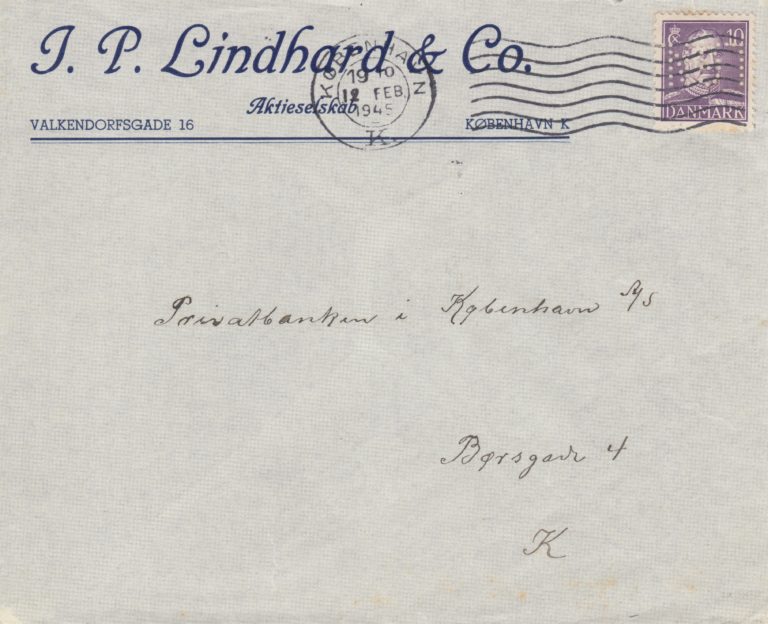 J. P. Lindhard & Co.
Aktieselskab
VALKENDORFSGADE 16
KØBENHAVN K
KØBENHAVN
19-10
12 FEB.
1945
K.
10
DANMARK
Privatbanken i København A/S
Børsgade 4
K